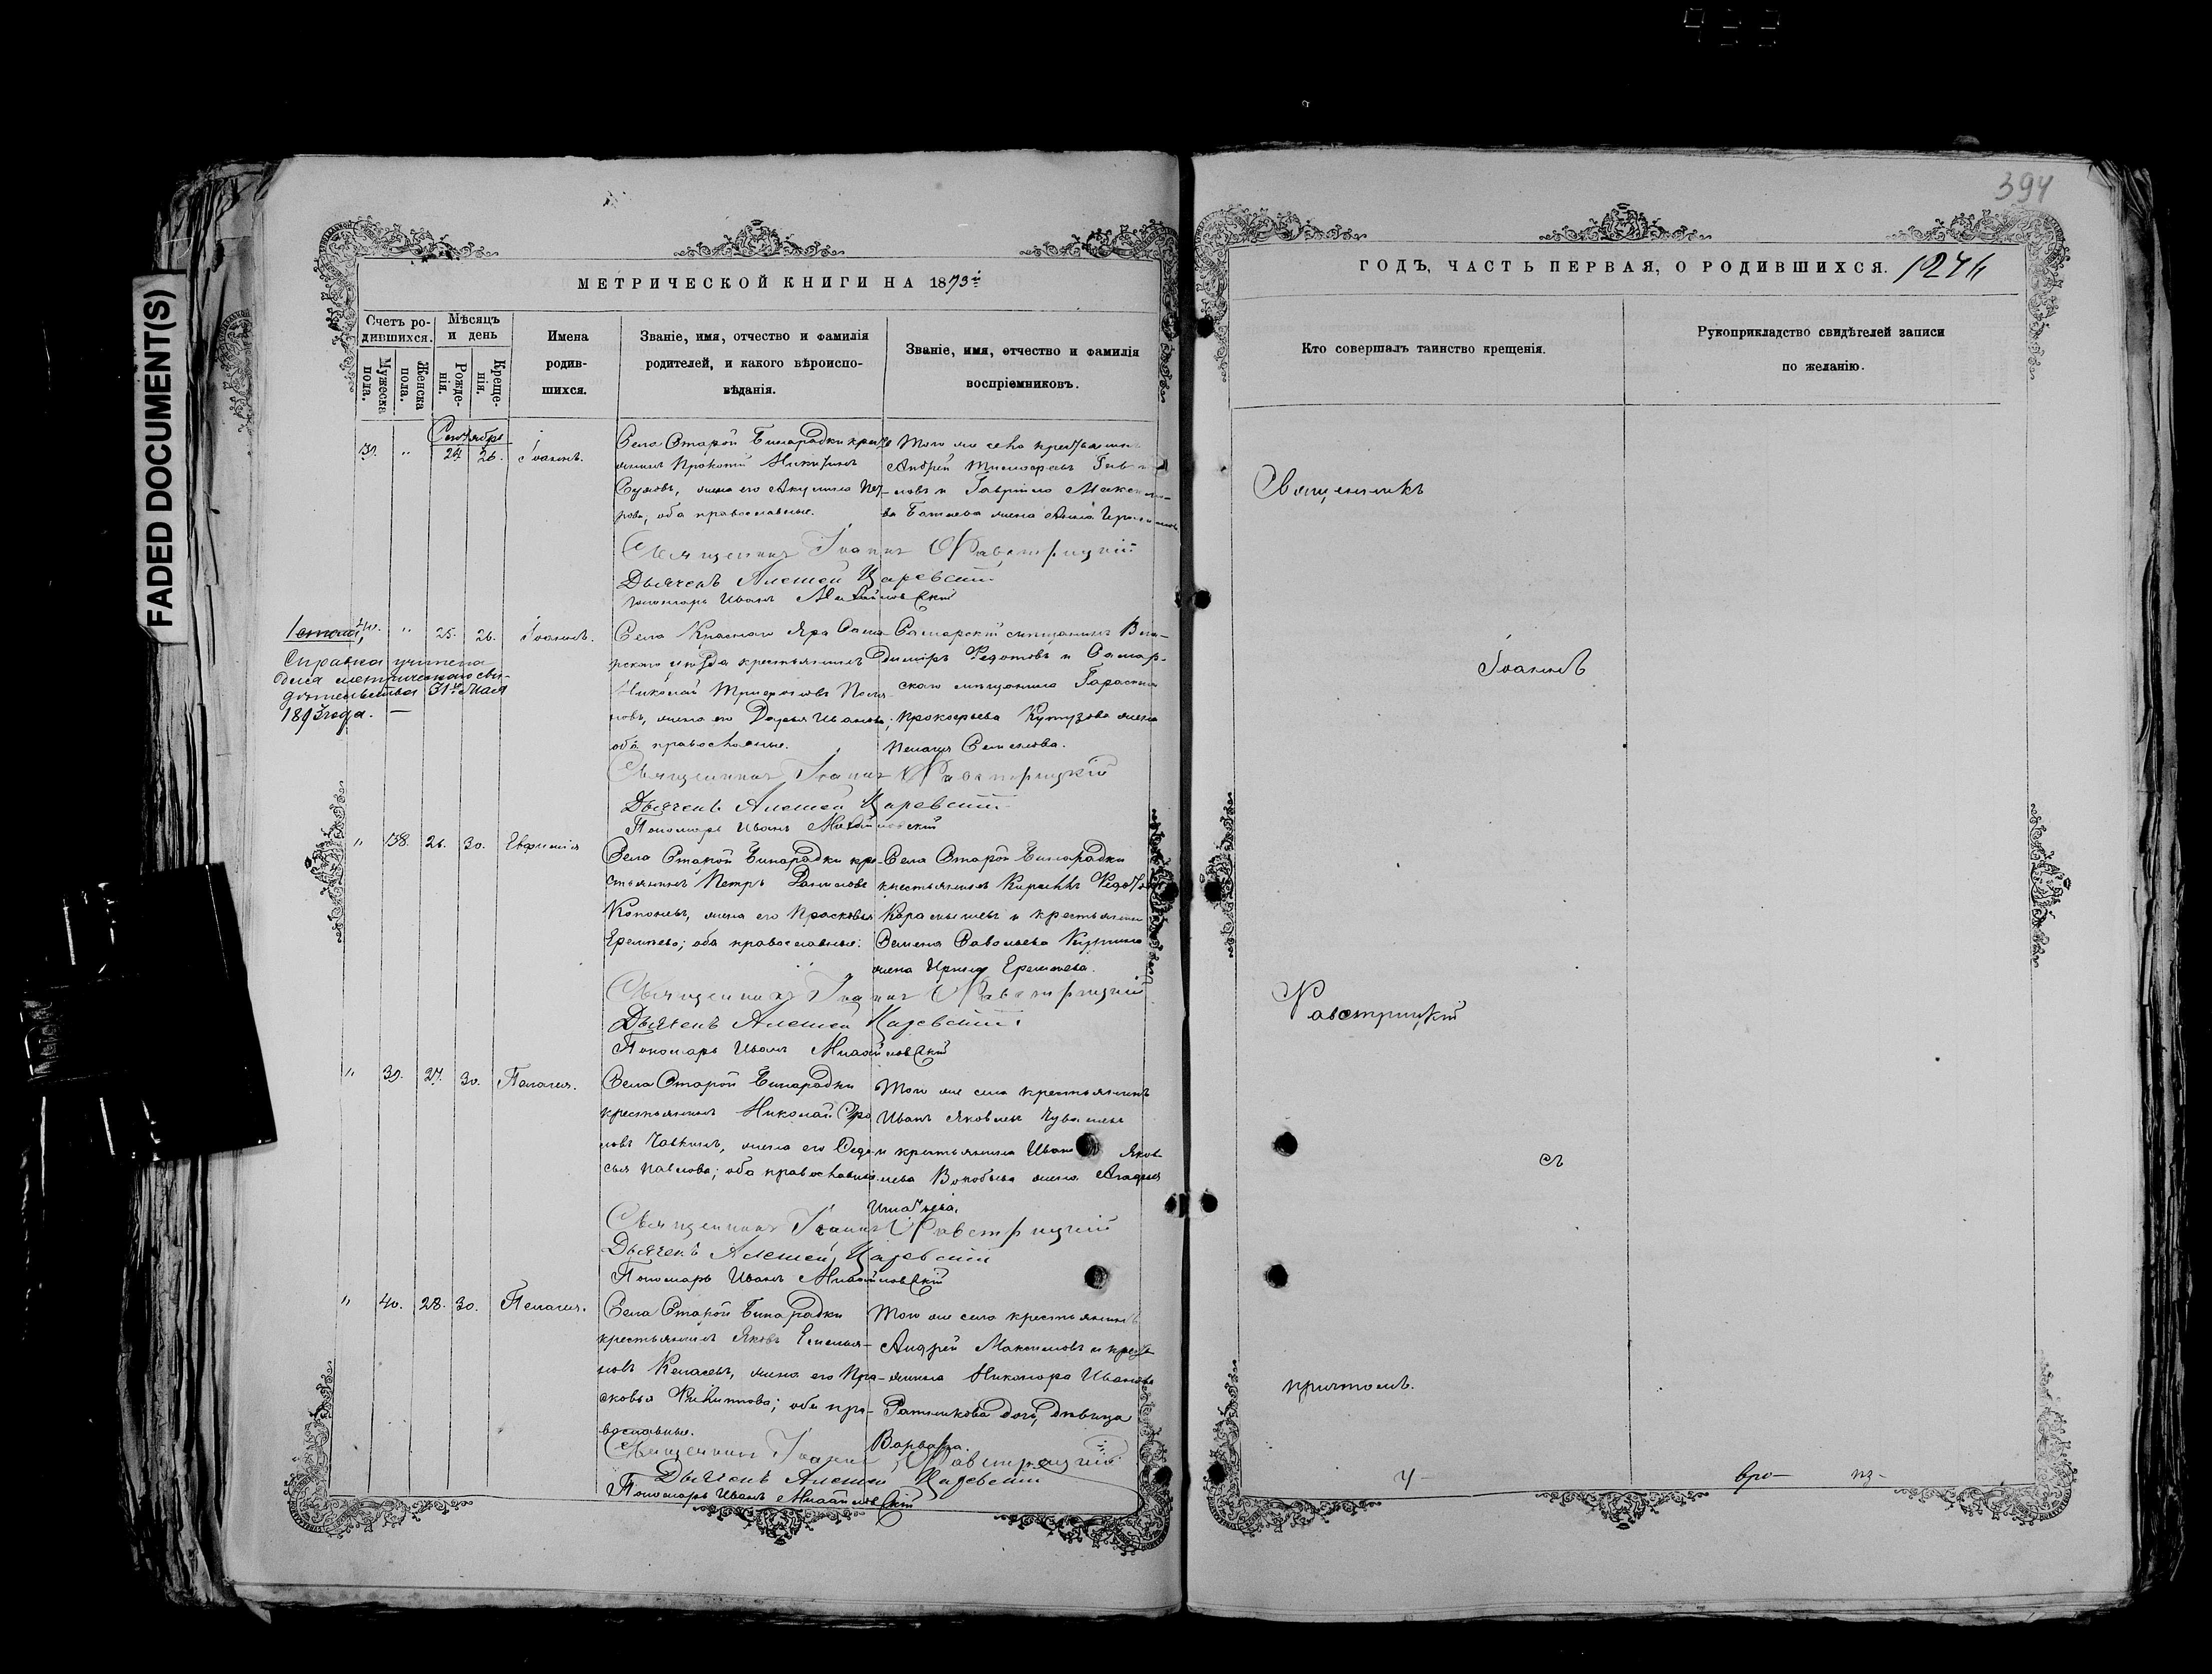 394
FADED DOCUMENT(S)
МЕТРИЧЕСКОЙ КНИГИ НА 1873й
Счетъ ро-
дившихся.
Мужеска
пола.
Женска
пола.
Мѣсяцъ
и день
Рожде-
нія.
Креще-
нія.
Имена
родив-
шихся.
Званіе, имя, отчество и фамилія
родителей, и какого вѣроиспо-
вѣданія.
Званіе, имя, отчество и фамилія
воспріемниковъ.
Сентября
39. " 24. 26. Іоаннъ.
Села Старой Бинарадки кресть
янинъ Прокопій Никитинъ
жена его Акулина Пет-
рова; оба православные.
Того же села крестьянинъ
Андрей
и Гаврiила
жена Анна
Священникъ Іоаннъ Равстрицкій
Дьячекъ Алексей Царевскій
Пономарь Иванъ Михайловскій
40. " 25. 26. Іоаннъ.
Справка учинена
для метрическаго сви-
дѣтельства 31го Мая
1893 года. —
Села Краснаго Яра Сама-
рскаго уѣзда крестьянинъ
Николай Трифоновъ
жена его Дарья Иванова;
оба православные.
Самарскій мѣщанинъ Вла-
димiръ Федотовъ и Самар-
скаго мѣщанина Гарасима
Прокофьева Кутузова жена
Пелагея Семенова.
Священникъ Іоаннъ Равстрицкій
Дьячекъ Алексей Царевскій
Пономарь Иванъ Михайловскій
" 38. 26. 30. Евфимія
Села Старой Бинарадки кре-
стьянинъ Петръ Даниловъ
жена его Прасковья
Еремѣева; оба православные.
Села Старой Бинарадки
крестьянинъ Кириллъ Федотовъ
Карамышевъ и крестьянина
Семена Савельева
жена Ирина Еремѣева.
Священникъ Іоаннъ Равстрицкій
Дьячекъ Алексей Царевскій
Пономарь Иванъ Михайловскій
" 39. 27. 30. Пелагия.
Села Старой Бинарадки
крестьянинъ Николай Фро
ловъ жена его Федо
сья Павлова; оба православные
Того же села крестьянинъ
Иванъ Яковлевъ
и крестьянина Ивана Яков-
лева Воробьева жена Агафья
Игнатьева.
Священникъ Іоаннъ Равстрицкій
Дьячекъ Алексей Царевскій
Пономарь Иванъ Михайловскій
" 40. 28. 30. Пелагия.
Села Старой Бинарадки
крестьянинъ Яковъ Емелья-
новъ жена его Пра-
сковья Филиппова; оба пра-
вославные.
Того же села крестьянинъ
Андрей Максимовъ и кресть
янина Никонора Иванова
дочь, дѣвица
Варвара.
Священникъ Іоаннъ Равстрицкій
Дьячекъ Алексей Царевскій
Пономарь Иванъ Михайловскій
ГОДЪ, ЧАСТЬ ПЕРВАЯ, О РОДИВШИХСЯ.
Кто совершалъ таинство крещенія.
Рукоприкладство свидѣтелей записи
по желанію.
Священникъ
Іоаннъ
Равстрицкій
съ
причтомъ.